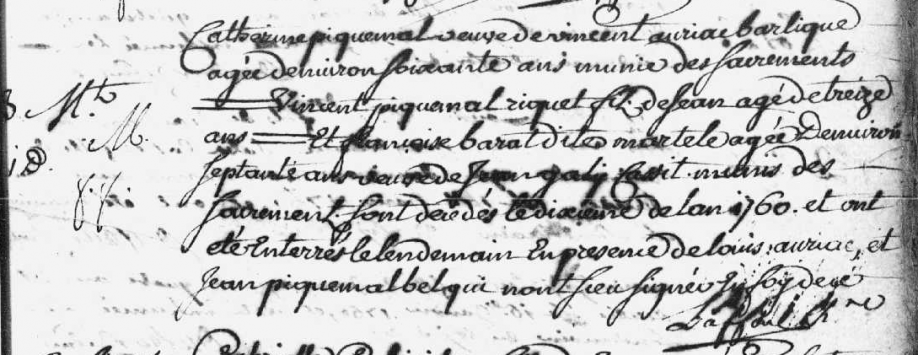 Catherine piquemal veuve de vincent auriac barlique
agée denviron soixante ans munie des sacrements
Mt. Vincent piquemal riquet fil. de Jean agé de treize
M. ans Et francoise barat dite martele agée Denviron
septante ans veuve de Jean galy munis des
sacrement, sont decedés le dixieme de lan 1760. et ont
eté Enterrés le lendemain En presence de louis auriac, et
Jean piquemal bel qui nont sceu signer En foy de ce